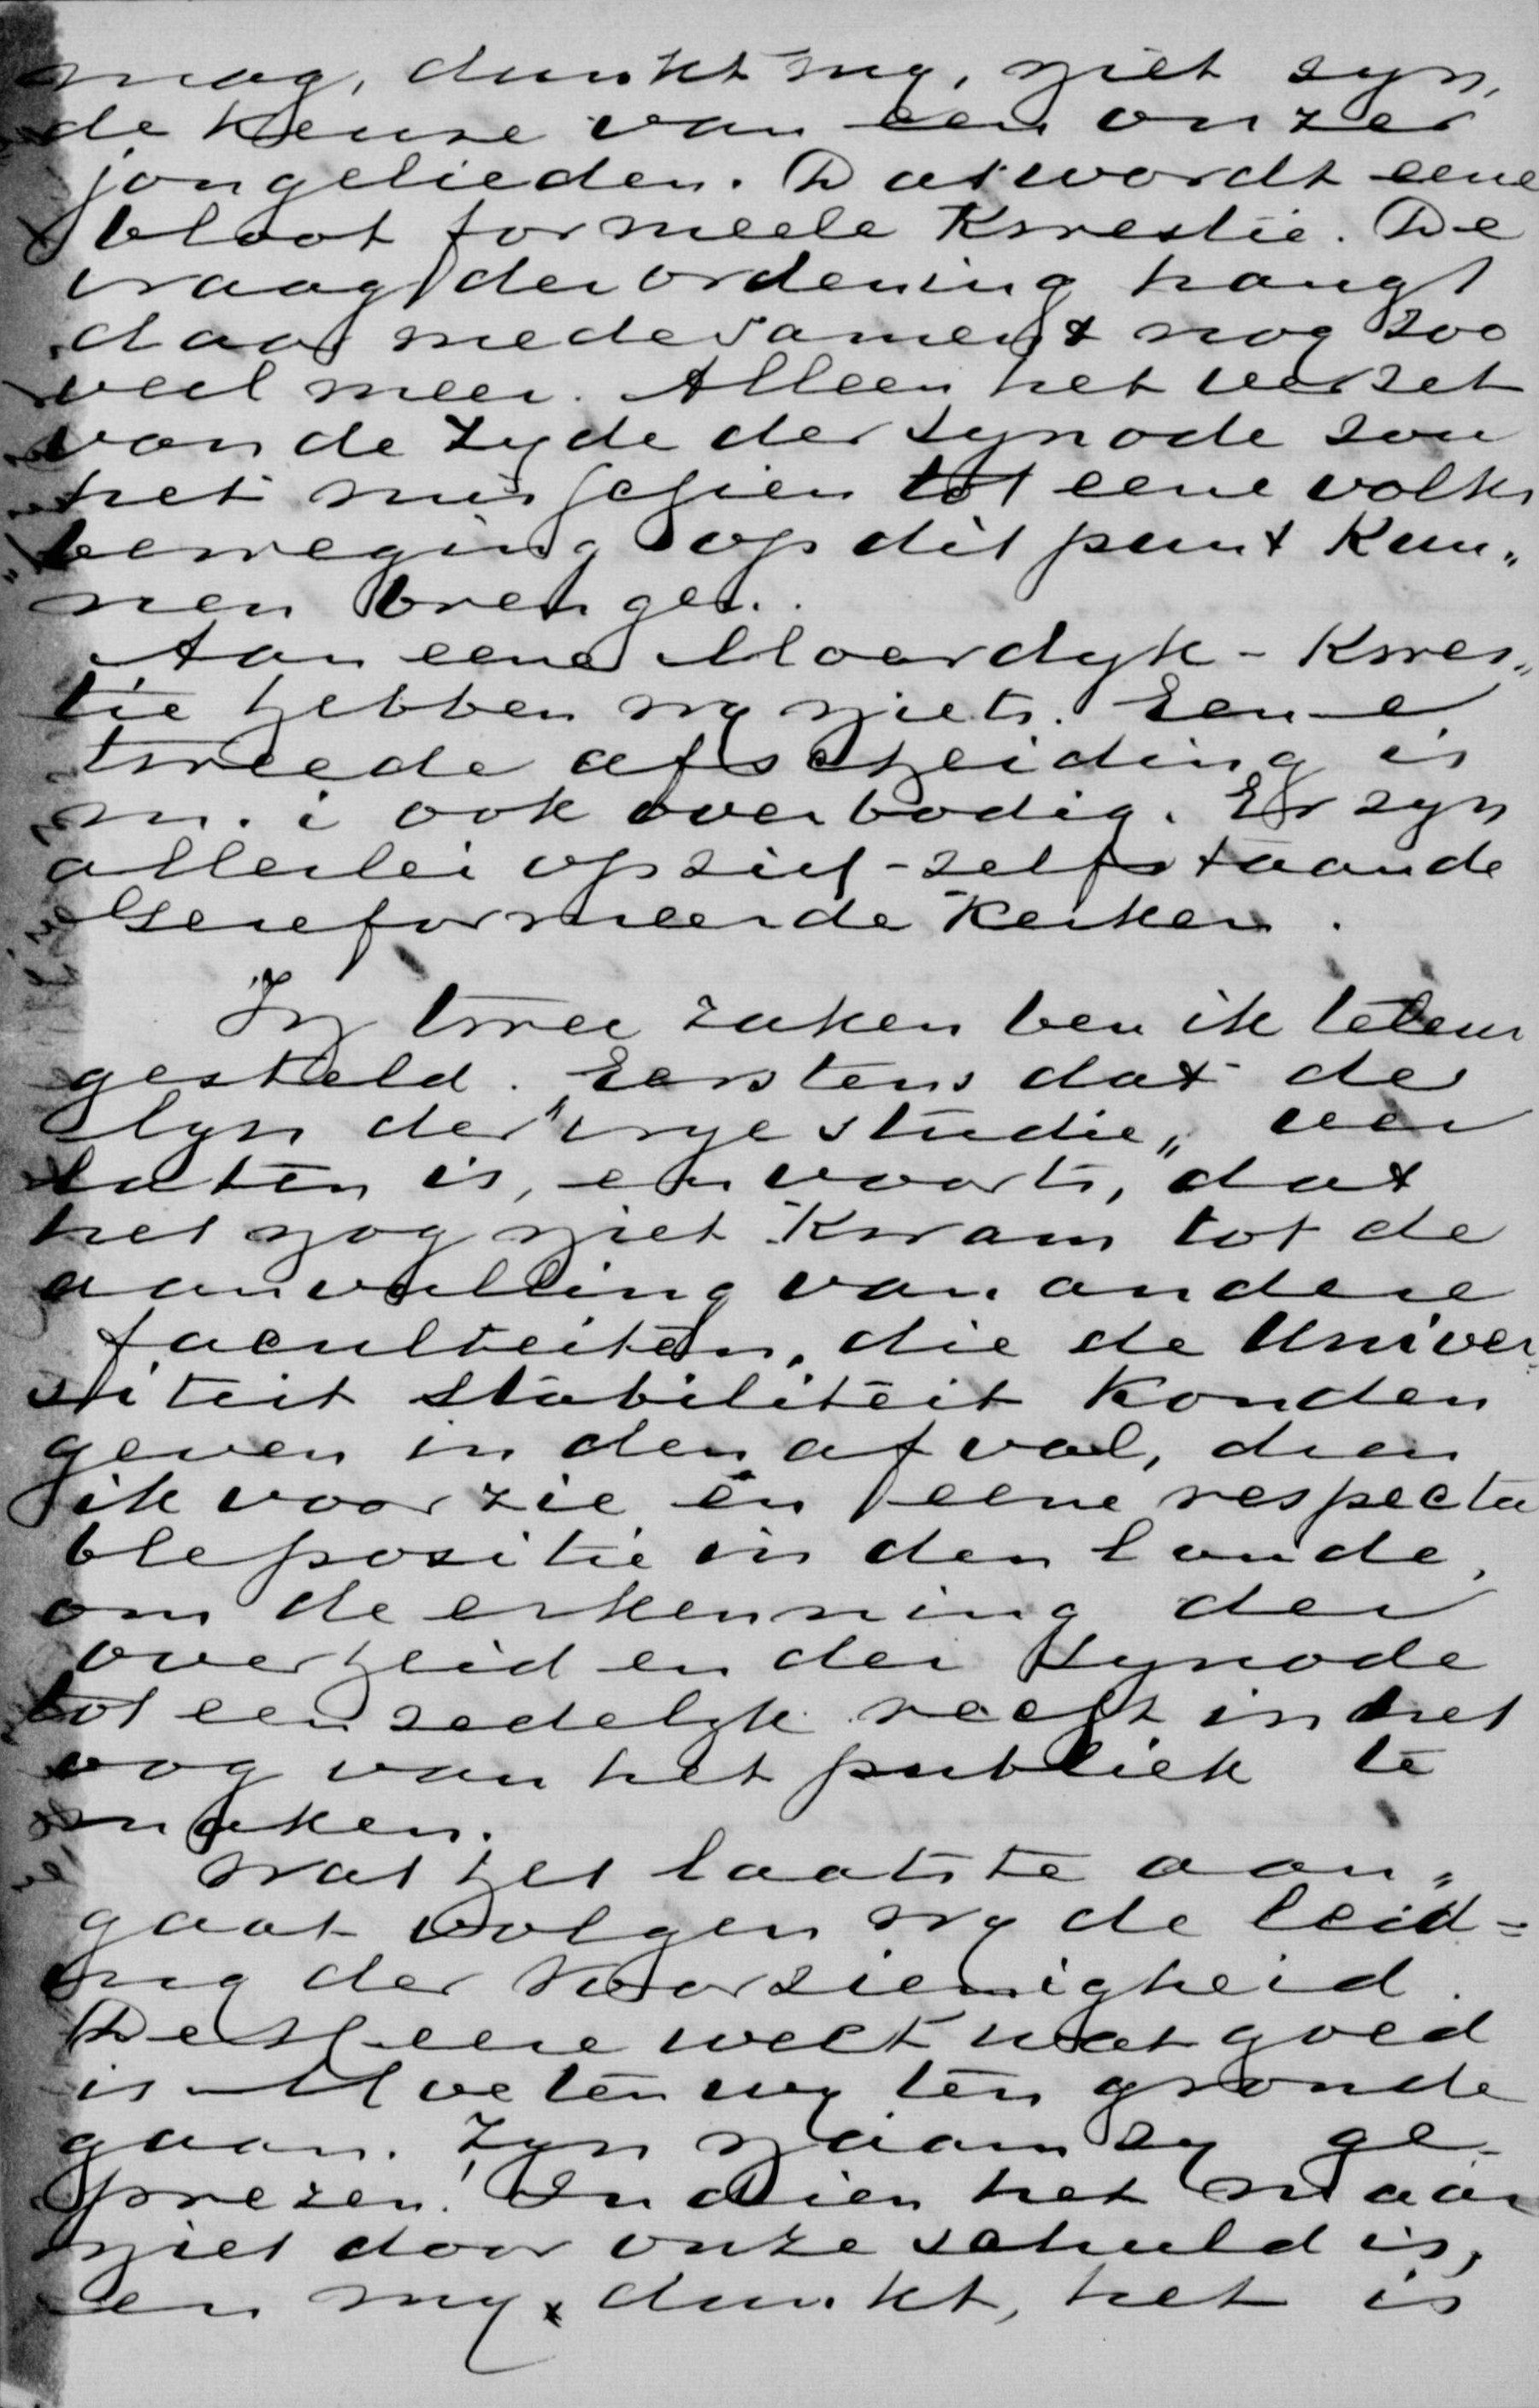 mag, dunkt my, niet zyn,
de keuze van een onzer
jongelieden. Dat wordt eene
bloot formeele kwestie. De
vraag der ordening hangt
daar mede samen & nog zoo
veel meer. Alleen het verzet
van de zyde der Synode zou
het misschien tot eene volks
beweging op dit punt kun„
nen brengen.
Aan eene Moerdyk-kwes„
tie hebben wy niets. Eene
tweede afscheiding is
m. i ook overbodig. Er zyn
allerlei op zich-zelfstaande
Gereformeerde Kerken.
In twee zaken ben ik teleur
gesteld. Eerstens dat de
lyn der "vrye studie„ ver
laten is, en voorts, dat
het nog niet kwam tot de
aanvulling van andere
faculteiten, die de Univer
siteit stabiliteit konden
geven in den afval, dien
ik voorzie en eene respecta
ble positie in den lande,
om de erkenning der
overheid en der Synode
tot een zedelyk recht in het
oog van het publiek te
maken.
Wat het laatste aan„
gaat volgen wy de leid=
ing der Voorzienigheid.
De Heere weet wat goed
is. Moeten wy ten gronde
gaan. Zyn naam zy ge-
prezen! Indien het maar
niet door onze schuld is,
en my dunkt, het is